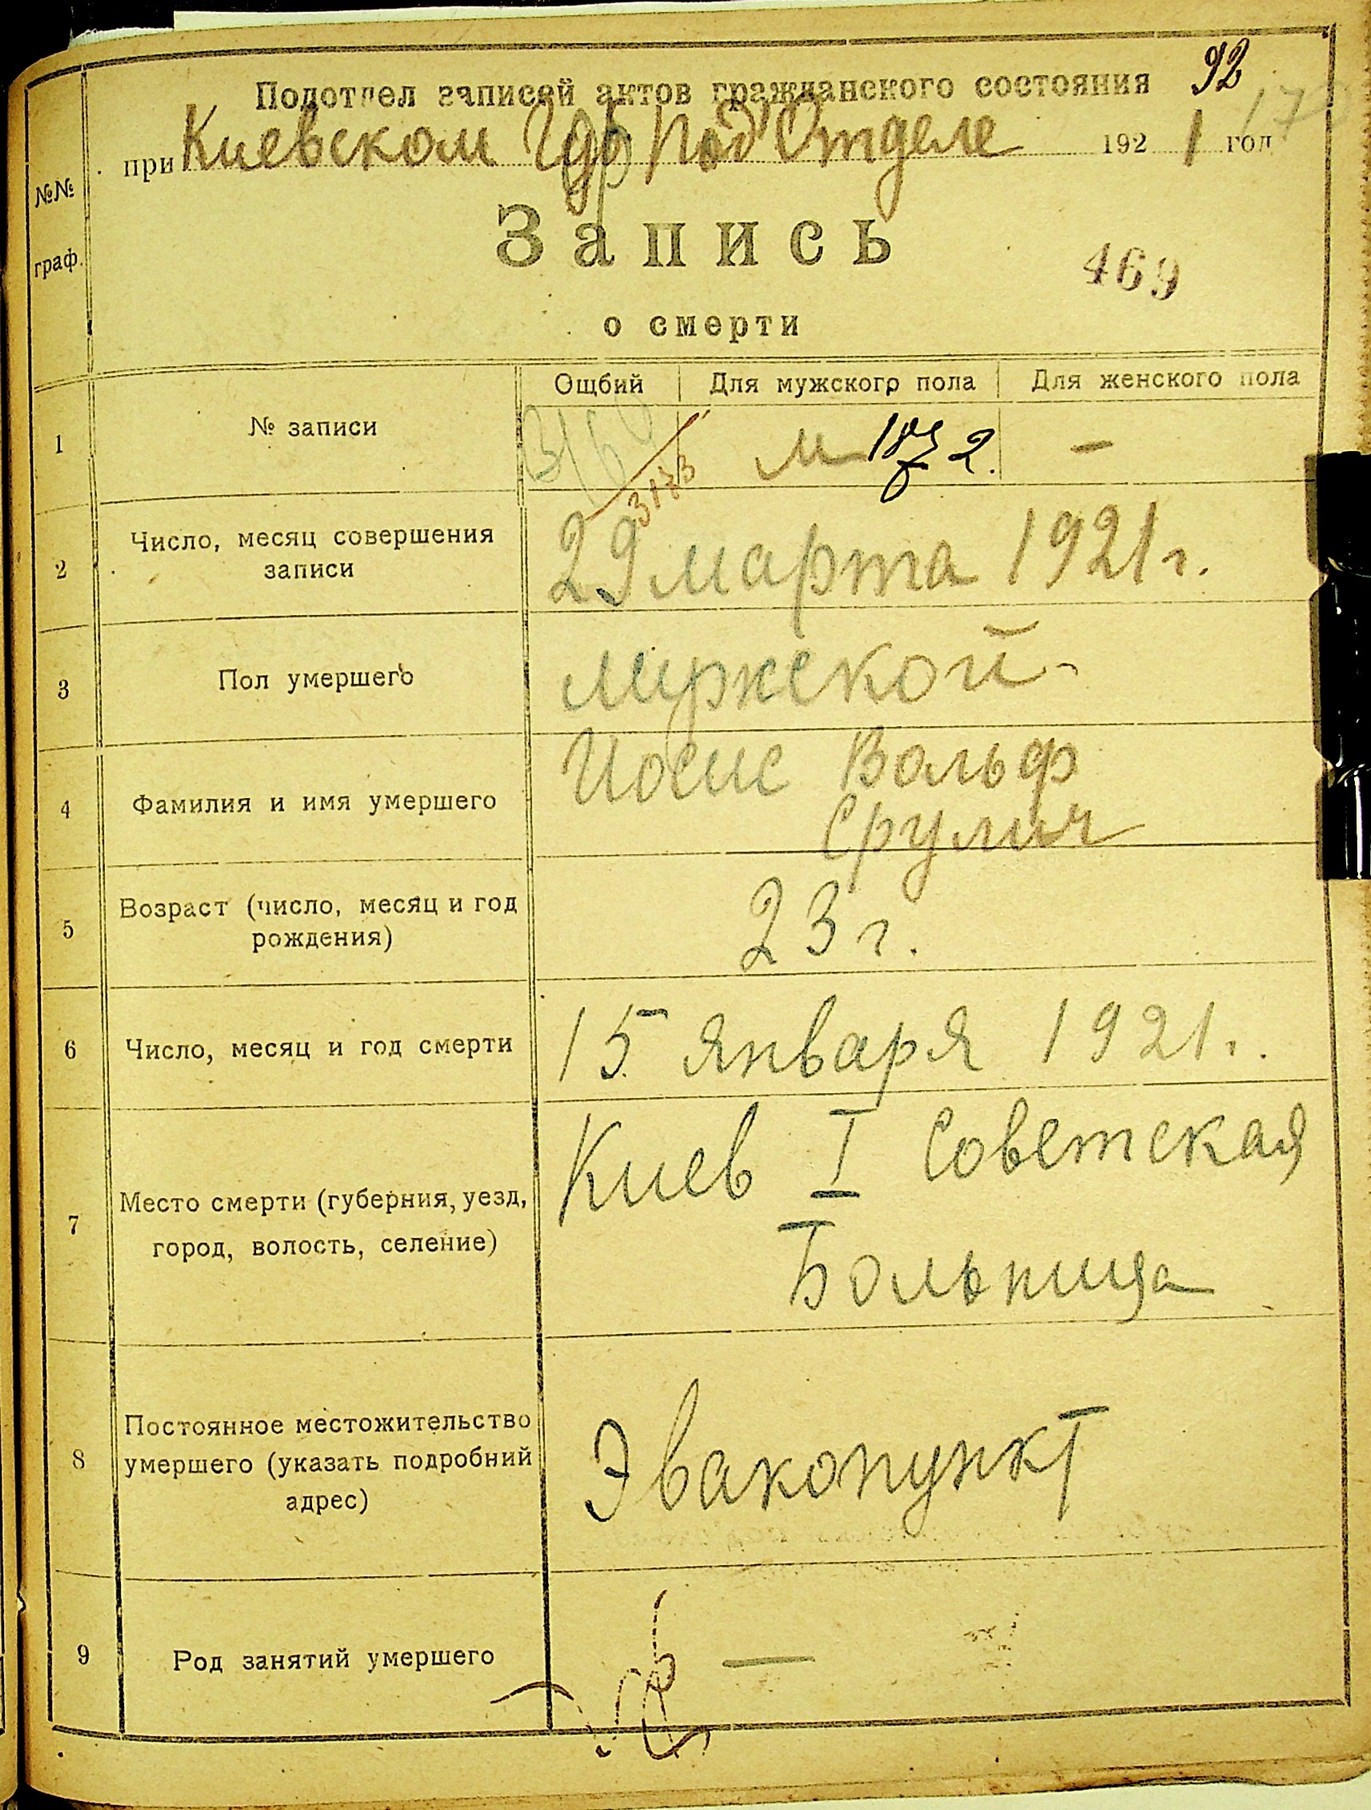 92
Подотдел записей актов гражданского состояния
17
при Киевском Губ Под'Отделе 1921 год
№№
граф.
Запись
469
о смерти
Ощбий Для мужского пола Для женского пола
1 № записи 3173 м 1872. —
2 Число, месяц совершения
записи
29 марта 1921 г.
3 Пол умершего Мужской
4 Фамилия и имя умершего Иосис Вольф
Срулич
5 Возраст (число, месяц и год
рождения)
23 г.
6 Число, месяц и год смерти 15 января 1921 г.
7 Место смерти (губерния, уезд,
город, волость, селение)
Киев I Советская
Больница
8 Постоянное местожительство
умершего (указать подробний
адрес)
Эвакопункт
9 Род занятий умершего —